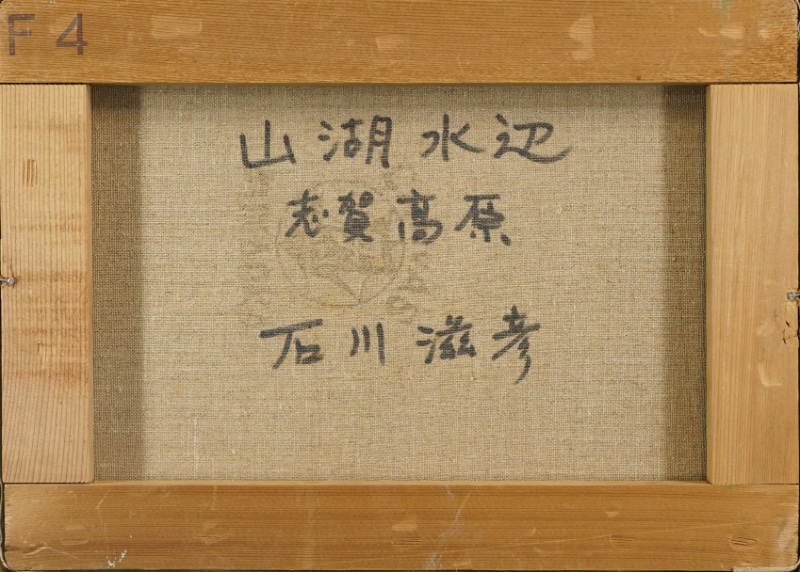 F4
山湖水辺
志賀高原
石川滋彦